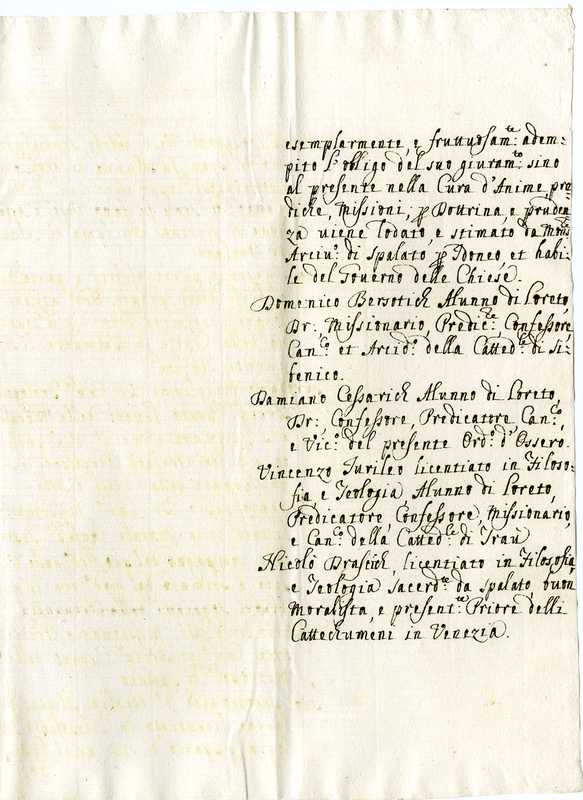 esemplarmente, e fruttuosam:te adem-
pito l'obligo del suo giuram:to sino
al presente nella Cura d'Anime, pre-
diche, Missioni; p Dottrina, e pruden-
za viene lodato, e stimato da Mons:
Arciv:o di Spalato p Idoneo, et habi-
le del Governo delle Chiese.
Domenico Bersotich Alunno di Loreto,
Dr: Missionario, Predic:re, Confessore,
Can:co et Arcid:o della Catted:le di Si-
benico.
Damiano Cessarich Alunno di Loreto,
Dr: Confessore, Predicatore Can:co,
e Vic:o del presente Ord:o d'Ossero.
Vincenzo Turileo licentiato in Filoso-
fia e Teologia, Alunno di Loreto,
Predicatore, Confessore, Missionario,
e Can:co della Catted:le di Traù
Nicolò Drascich, licentiato in Filosofia,
e Teologia sacerd:te da Spalato, buon
Moralista, e present:te Priore delli
Cattechumeni in Venezia.